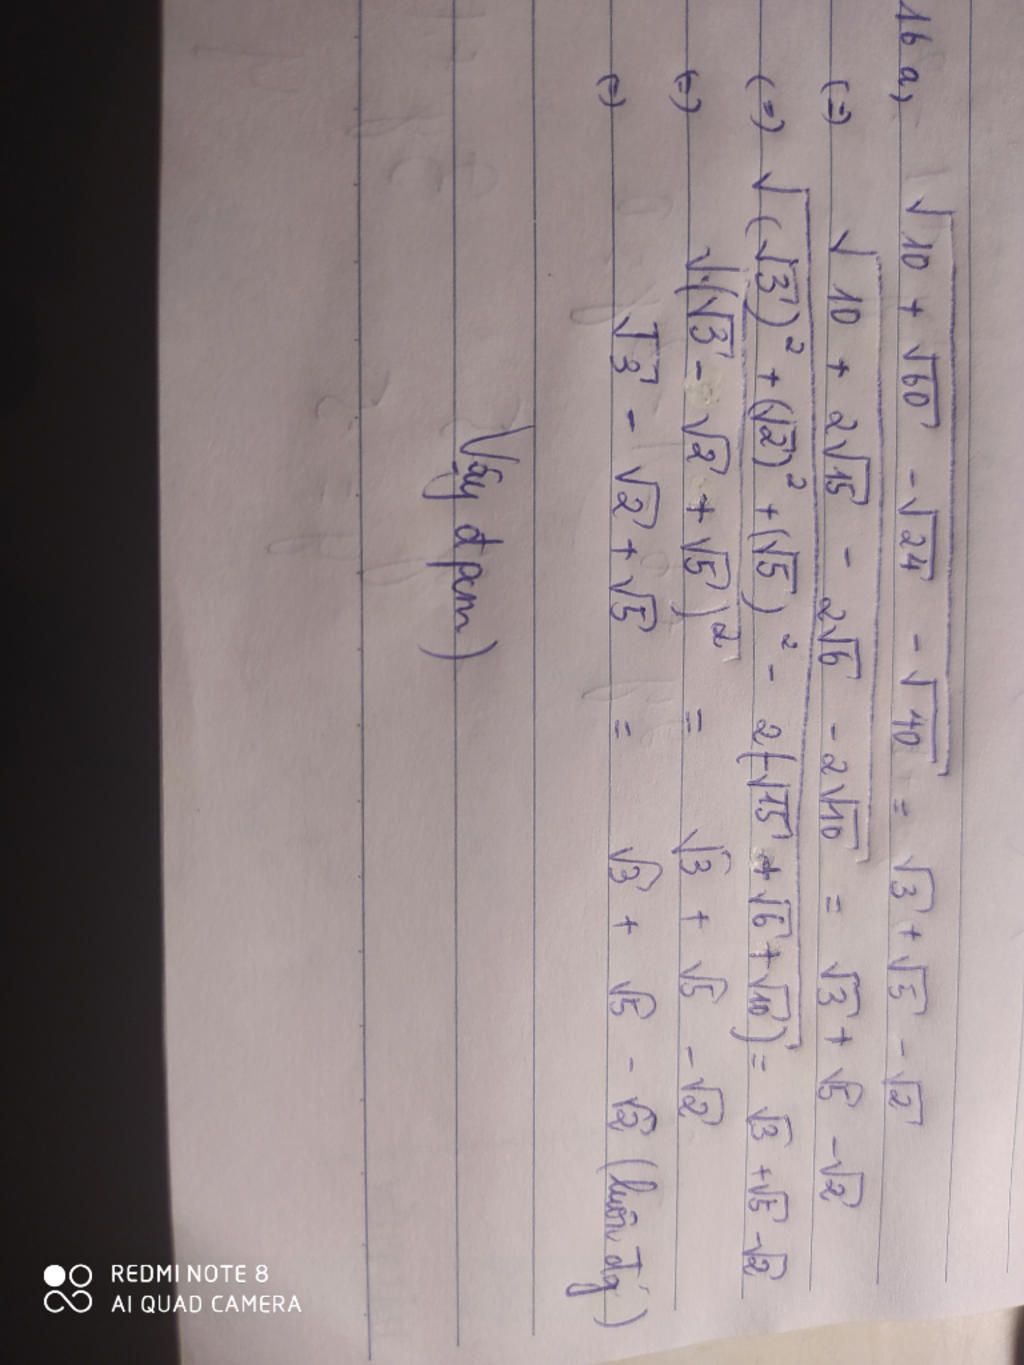 16 a, √(10 + √60 - √24 - √40) = √3 + √5 - √2
(=) √(10 + 2√15 - 2√6 - 2√10) = √3 + √5 - √2
(=) √((√3)² + (√2)² + (√5)² - 2(-√15 + √6 + √10)) = √3 + √5 - √2
(=) √((√3 - √2 + √5)²) = √3 + √5 - √2
(=) √3 - √2 + √5 = √3 + √5 - √2 (luôn đg)
Vậy đpcm)
REDMI NOTE 8
AI QUAD CAMERA